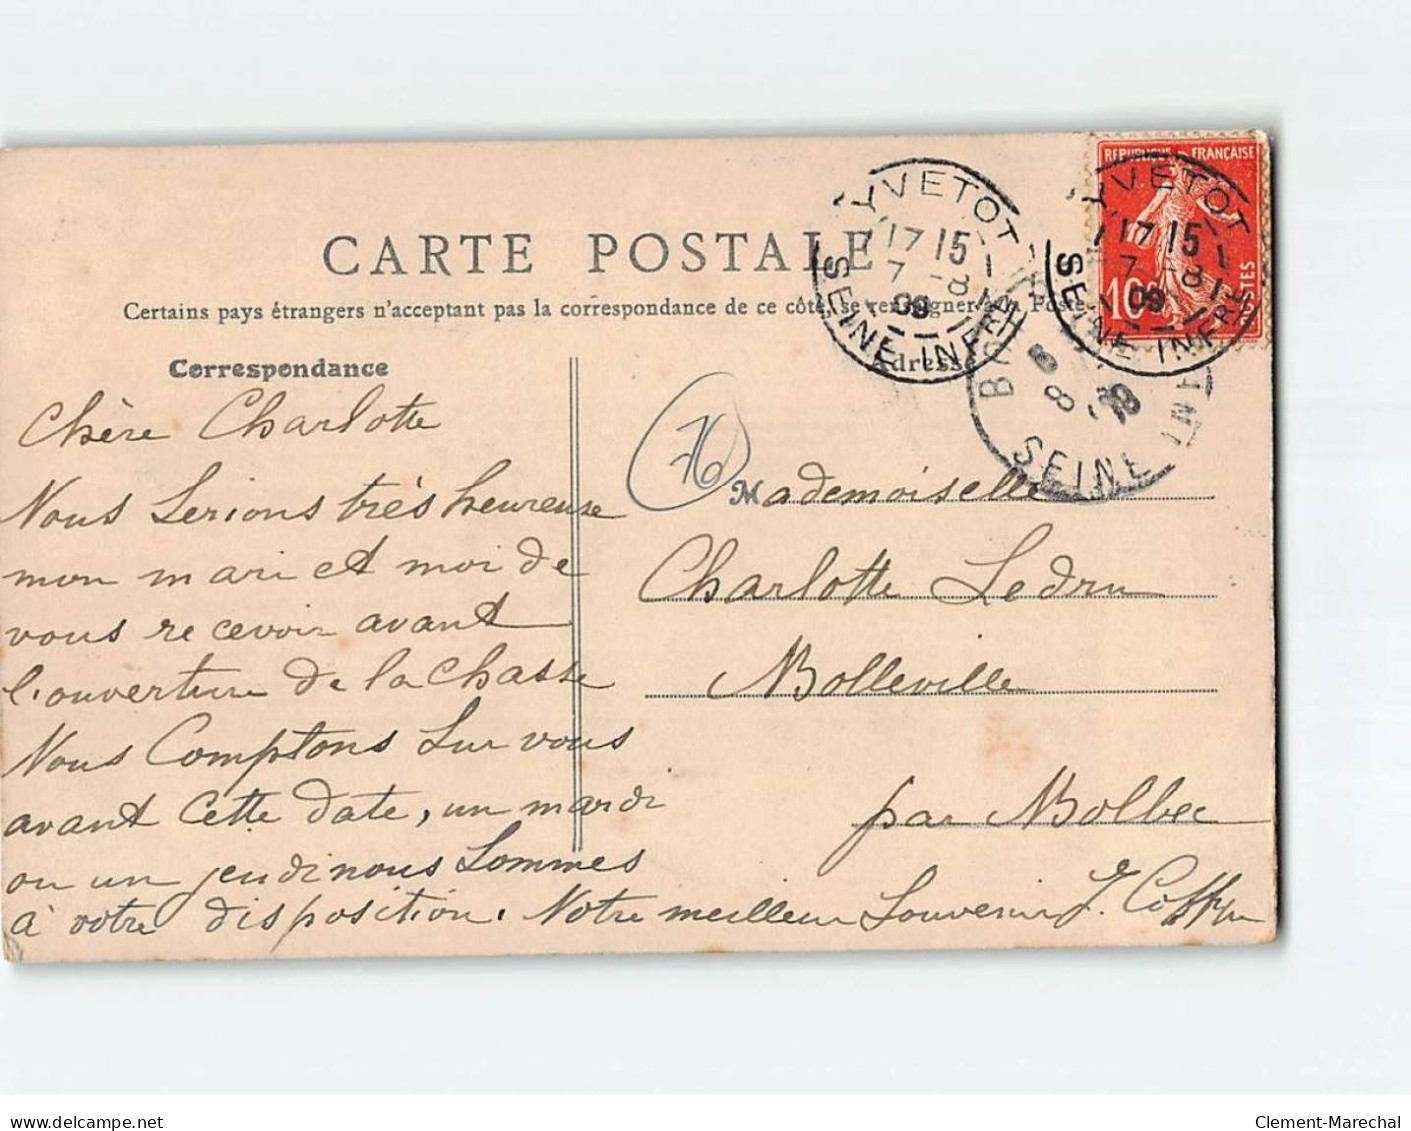 RÉPUBLIQUE FRANÇAISE
10
POSTES
YVETOT
17 15
7 -8
09
SEINE INFRE
YVETOT
17 15
7 -8
09
SEINE INFRE
8
SEINE
CARTE POSTALE
Certains pays étrangers n'acceptant pas la correspondance de ce côté, se renseigner à la Poste
Correspondance
Adresse
76
Chère Charlotte
Nous serions très heureuse
mon mari et moi de
vous recevoir avant
l'ouverture de la chasse
Nous Comptons sur vous
avant cette date, un mardi
ou un jeudi nous sommes
à votre disposition. Notre meilleur souvenir J.
Mademoiselle
Charlotte Ledru
Bolleville
par Bolbec
delcampe.net
Clement-Marechal